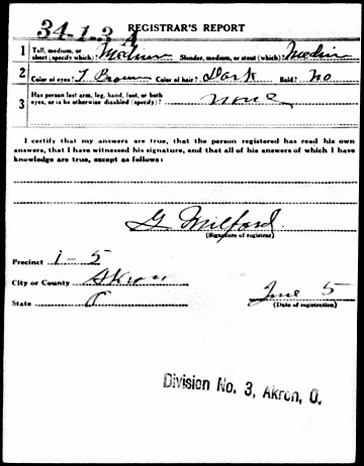 34-1-3 A
REGISTRAR'S REPORT
1 Tall, medium, or short (specify which)? Medium Slender, medium, or stout (which)? Medium
2 Color of eyes? L Brown Color of hair? Dark Bald? No
3 Has person lost arm, leg, hand, foot, or both eyes, or is he otherwise disabled (specify)? none
I certify that my answers are true, that the person registered has read his own
answers, that I have witnessed his signature, and that all of his answers of which I have
knowledge are true, except as follows:
G Milford.
(Signature of registrar)
Precinct 1-5
City or County Akron
State O
June 5
(Date of registration)
Division No. 3, Akron, O.